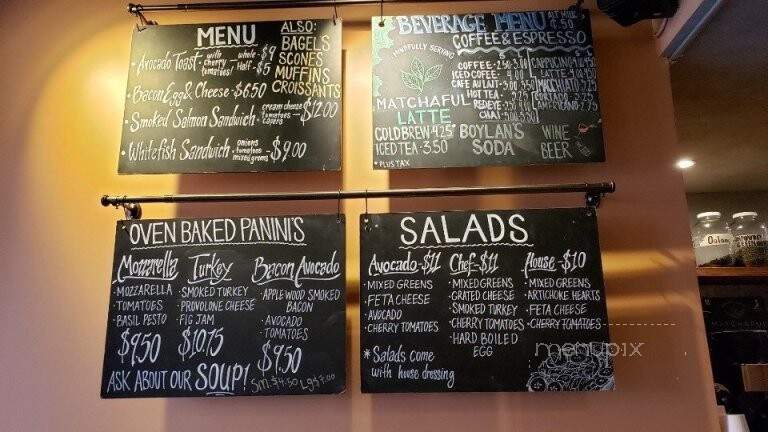 MENU
Avocado Toast - with cherry tomatoes! whole - $9 Half - $5
Bacon Egg & Cheese - $6.50
Smoked Salmon Sandwich - cream cheese tomatoes capers $12.00
Whitefish Sandwich - onions tomatoes mixed greens - $9.00
ALSO:
BAGELS
SCONES
MUFFINS
CROISSANTS
BEVERAGE MENU
ALT MILK
COFFEE & ESPRESSO
MINDFULLY SERVING
MATCHAFUL
LATTE
COLD BREW 4.25
ICED TEA - 3.50
* PLUS TAX
COFFEE
ICED COFFEE
CAFE AU LAIT
HOT TEA
REDEYE
CHAI
CAPPUCCINO
LATTE
MACCHIATO
AMERICANO
BOYLAN'S
SODA
WINE
BEER
OVEN BAKED PANINI'S
Mozzarella
MOZZARELLA
TOMATOES
BASIL PESTO
$9.50
Turkey
SMOKED TURKEY
PROVOLONE CHEESE
FIG JAM
$10.75
Bacon Avocado
APPLEWOOD SMOKED
BACON
AVOCADO
TOMATOES
$9.50
ASK ABOUT OUR SOUP! Sm. $4.50 Lg $7.00
SALADS
Avocado - $11
MIXED GREENS
FETA CHEESE
AVOCADO
CHERRY TOMATOES
Chef - $11
MIXED GREENS
GRATED CHEESE
SMOKED TURKEY
CHERRY TOMATOES
HARD BOILED
EGG
House - $10
MIXED GREENS
ARTICHOKE HEARTS
FETA CHEESE
CHERRY TOMATOES
* Salads come
with house dressing
menupix